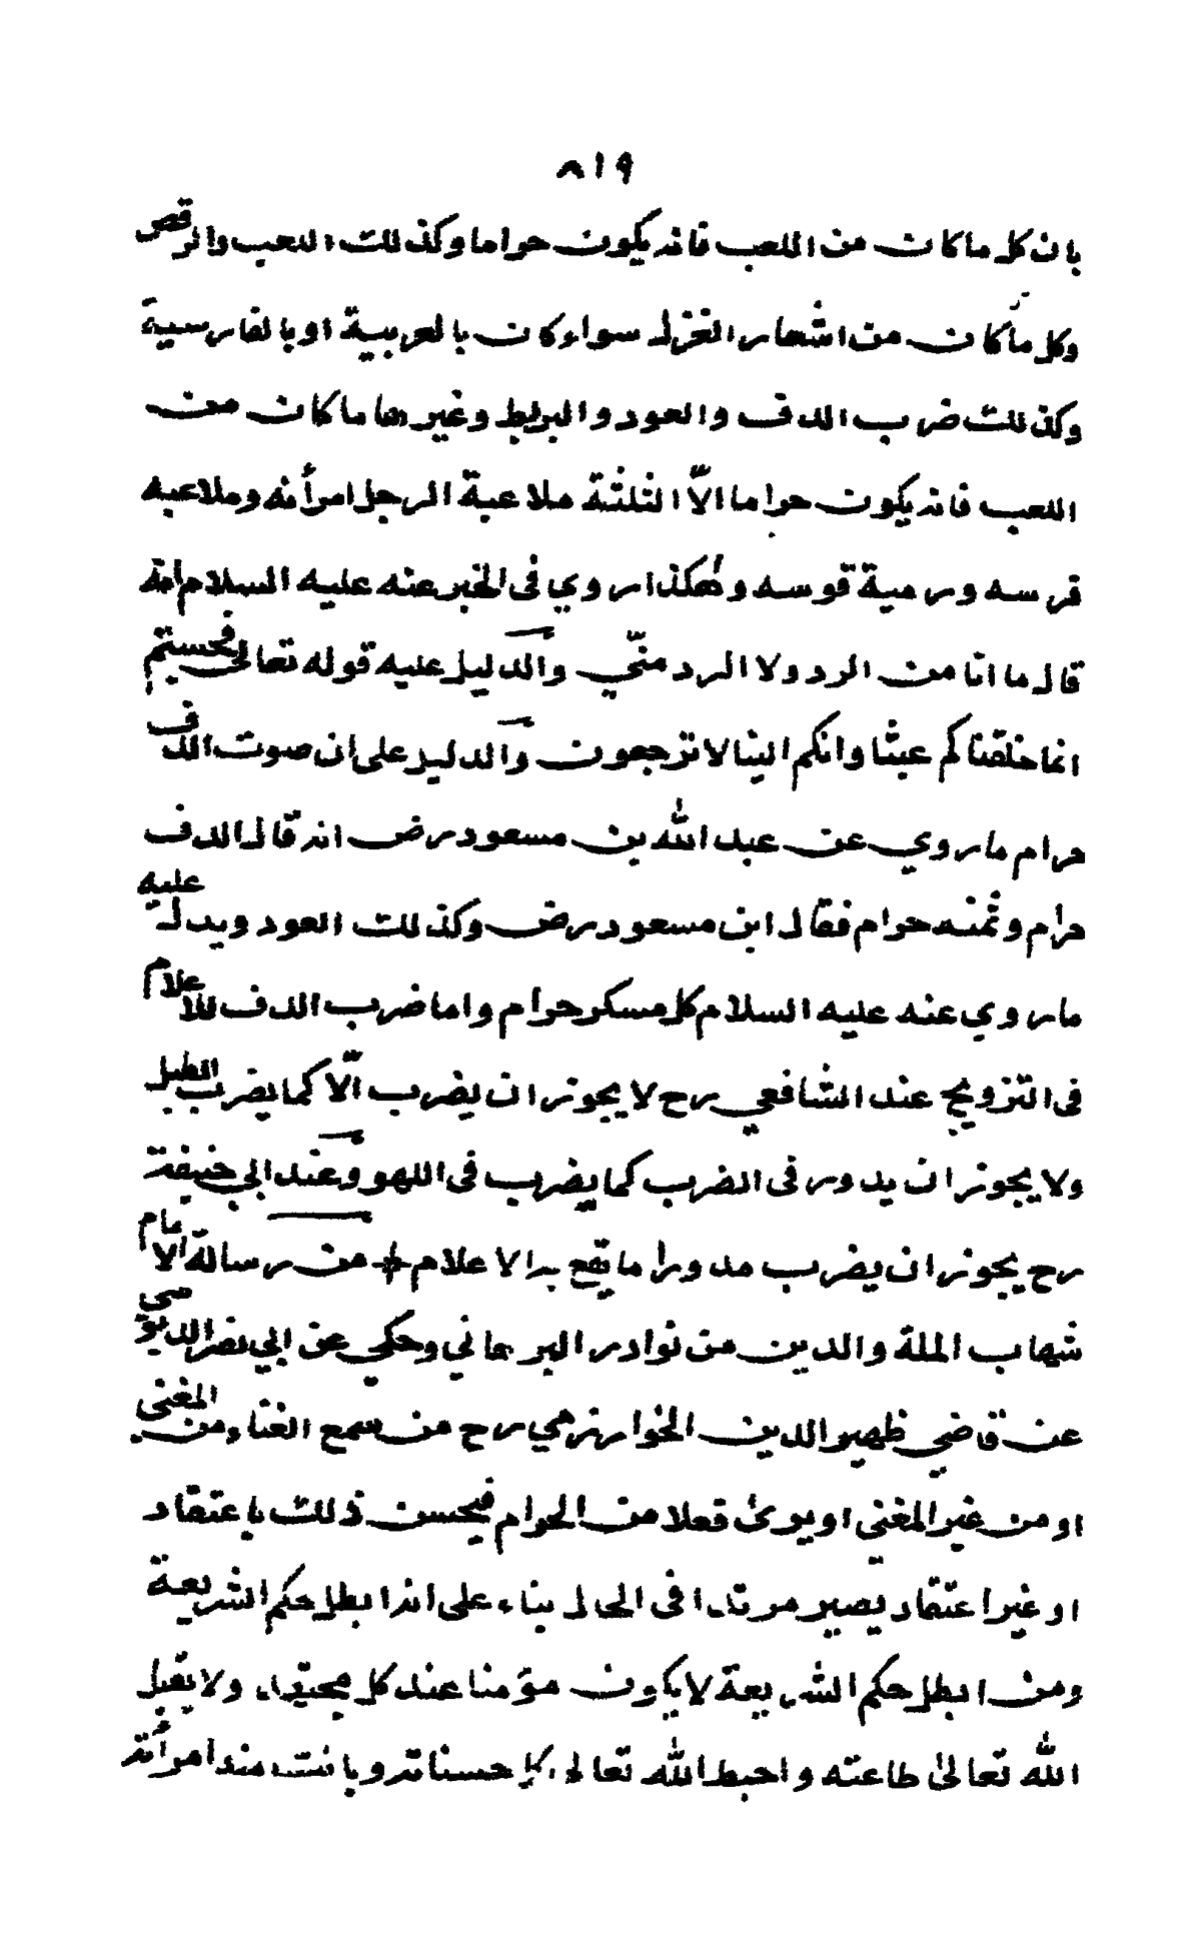 ٨١٩
بان كل ما كان من اللعب فانه يكون حراما وكذلك اللعب والرقص
وكل ما كان من اشعار الغزل سواء كان بالعربية او بالفارسية
وكذلك ضرب الدف والعود والبربط وغيرها ما كان من
اللعب فانه يكون حراما الّا الثلثة ملاعبة الرجل امرأته وملاعبه
فرسه ورمية قوسه وهكذا روي فى الخبر عنه عليه السلام انه
قال ما انا من الرد ولا الرد منّي والدليل عليه قوله تعالى افحسبتم
انما خلقناكم عبثا وانكم الينا لا ترجعون والدليل على ان صوت الدف
حرام ما روي عن عبد الله بن مسعود رض انه قال الدف
حرام وثمنه حرام فقال ابن مسعود رض وكذلك العود ويدل عليه
ما روي عنه عليه السلام كل مسكر حرام واما ضرب الدف للاعلام
فى التزويج عند الشافعي رح لا يجوز ان يضرب الّا كما يضرب الطبل
ولا يجوز ان يدور فى الضرب كما يضرب فى اللهو وعند ابي حنيفة
رح يجوز ان يضرب مدورا ما يقع به الاعلام من رسالة الامام
شهاب الملة والدين من نوادر البرهاني وحكي عن ابي نصر الدبوسي
عن قاضي ظهير الدين الخوارزمي رح من سمع الغناء من المغنى
او من غير المغنى او يرى فعلا من الحرام فيحسن ذلك باعتقاد
او غير اعتقاد يصير مرتدا فى الحال بناء على انه ابطل حكم الشريعة
ومن ابطل حكم الشريعة لا يكون مؤمنا عند كل مجتهد ولا يقبل
الله تعالىٰ طاعته واحبط الله تعالى كل حسناته وبانت منه امرأته